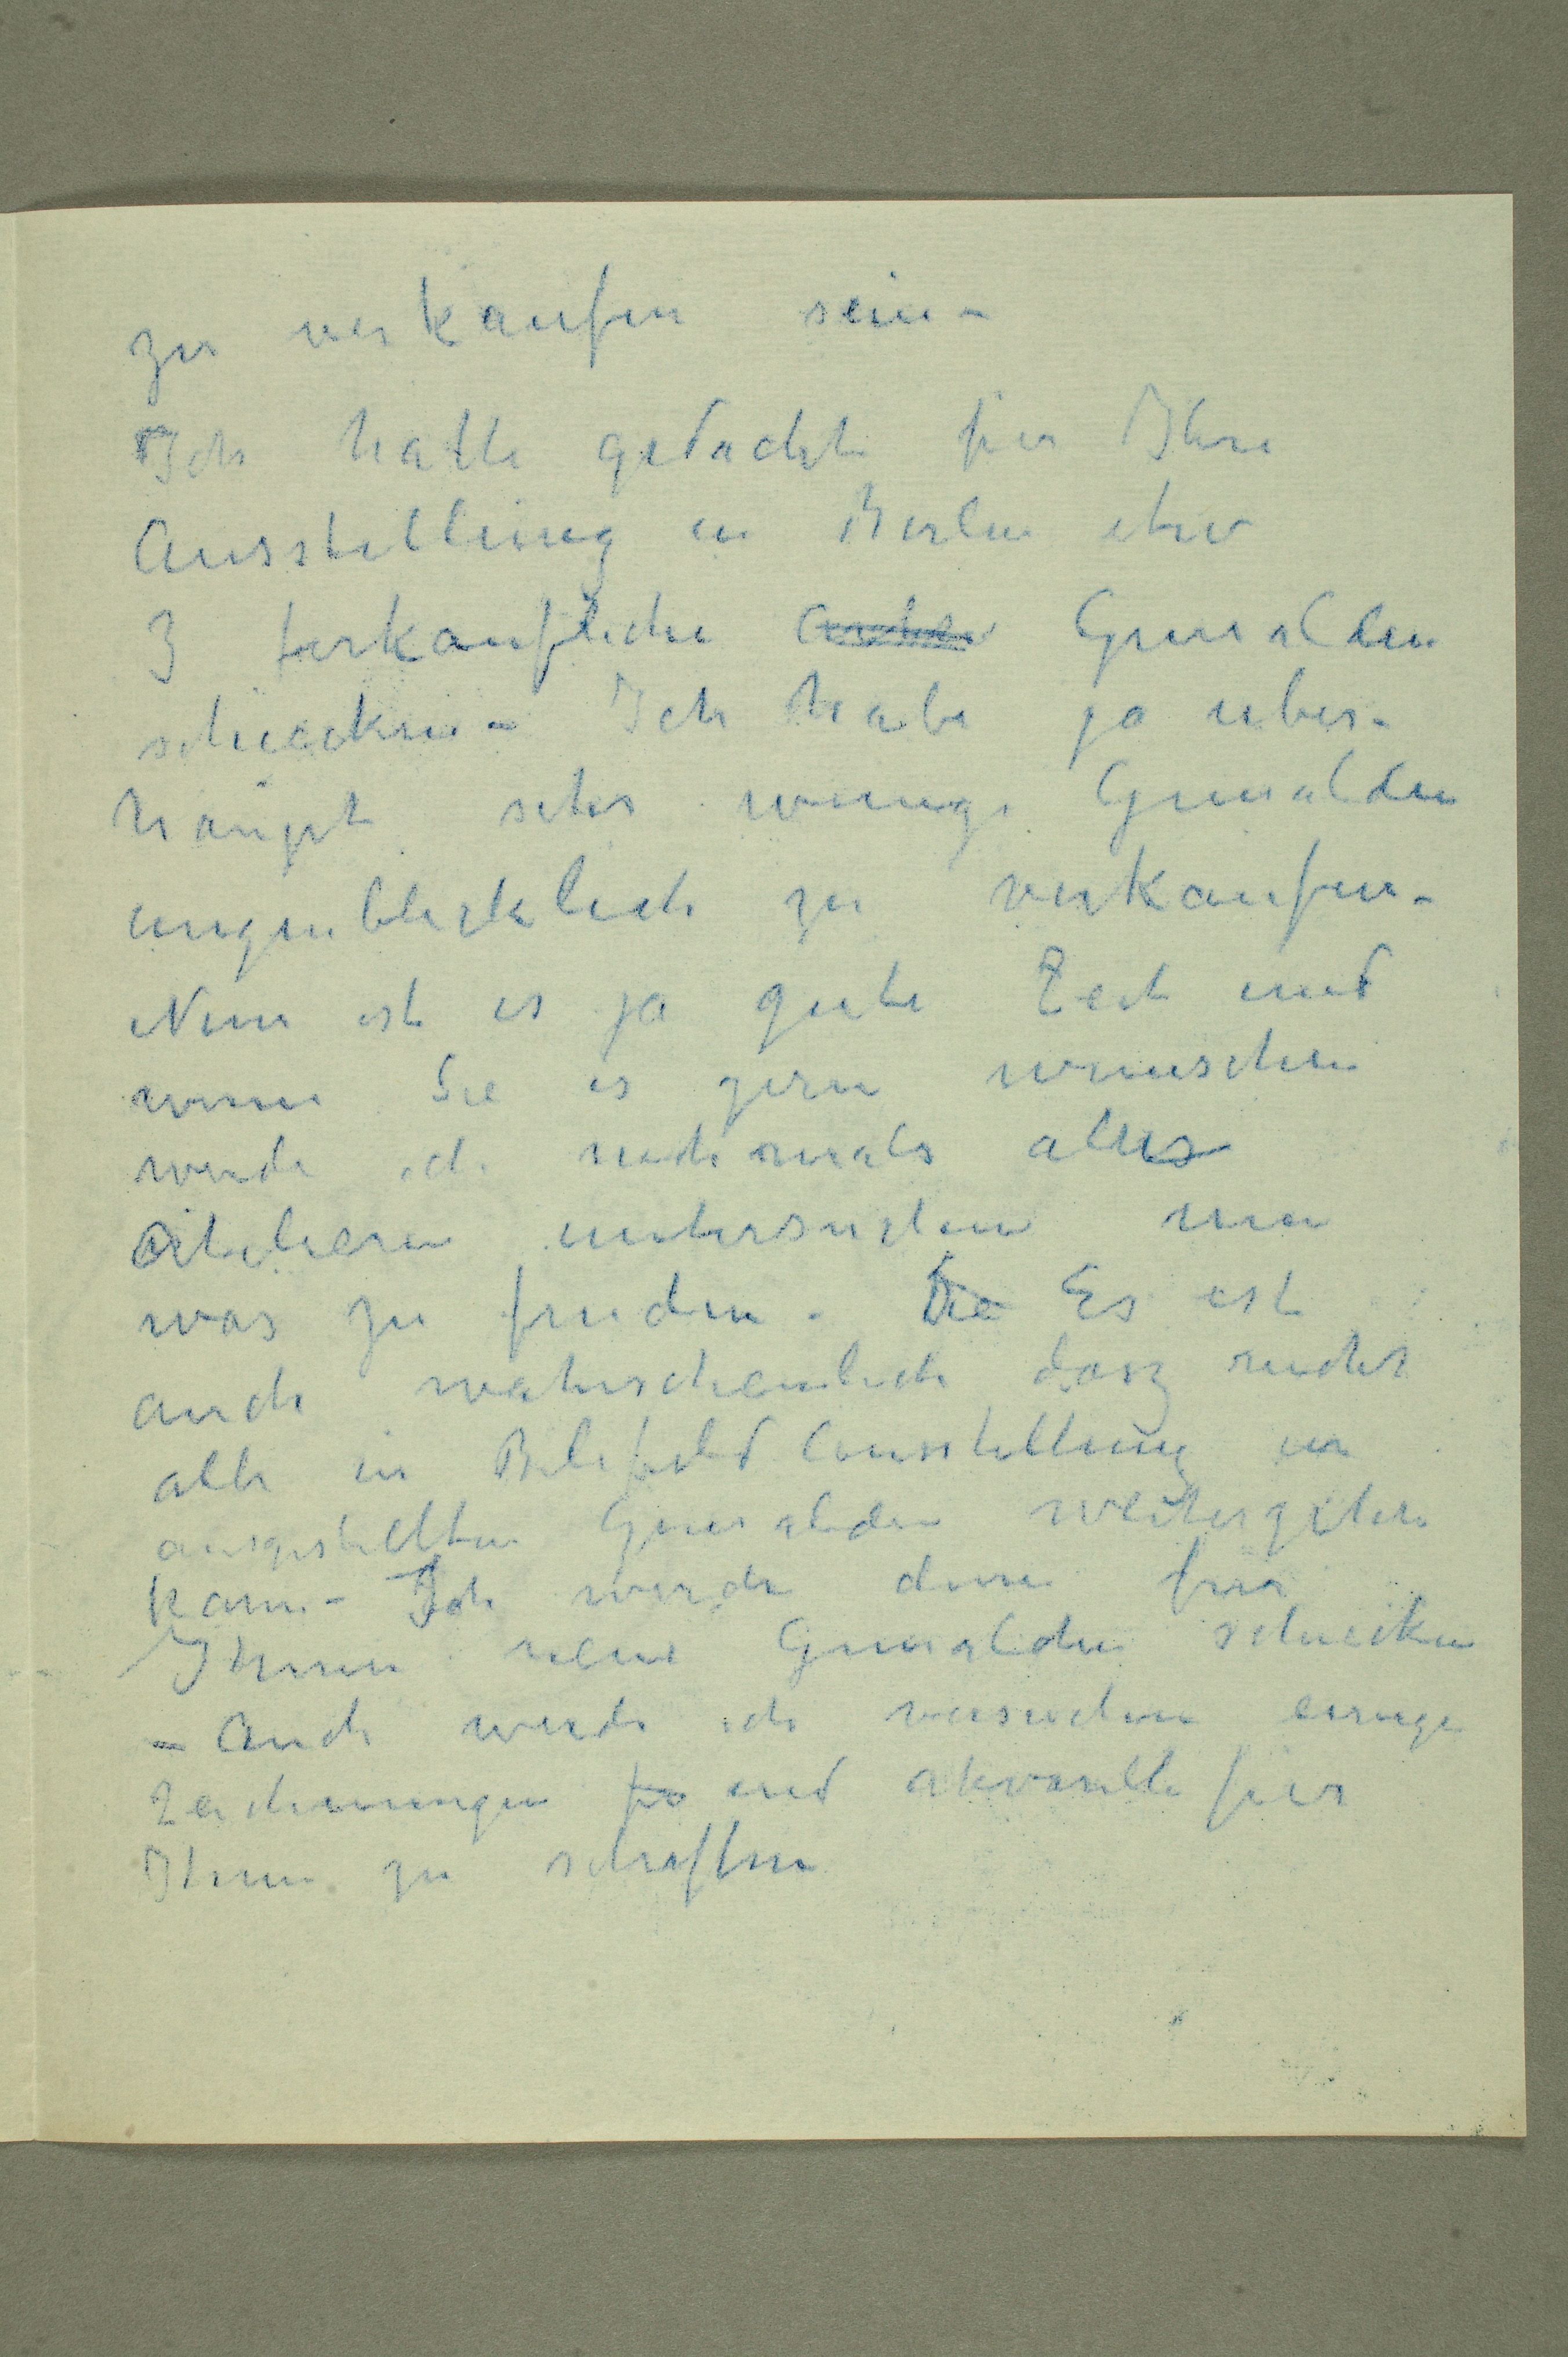 zu verkaufen sein –
Ich hatte gedacht für Ihre
Ausstellung in Berlin etw
3 ferkaufliche Gemalden
schiecken – Ich habe ja uber-
haupt sehr wenige Gemalden
augenblicklich zu verkaufen –
Nun ist es ja gute Zeit und
wenn Sie es gern wunschen
werde ich nochmals alles
untersuchen um
was zu finden. Die Es ist
auch wahrscheinlich dasz nicht
alle in Bilefeld Ausstellung in
ausgestellten Gemalden weitergehen
kann – Ich werde dann für
Ihnen neue Gemalden schiecken
– Auch werde ich versuchen einige
Zeichnungen und akvarelle für
Ihnen zu schaffen